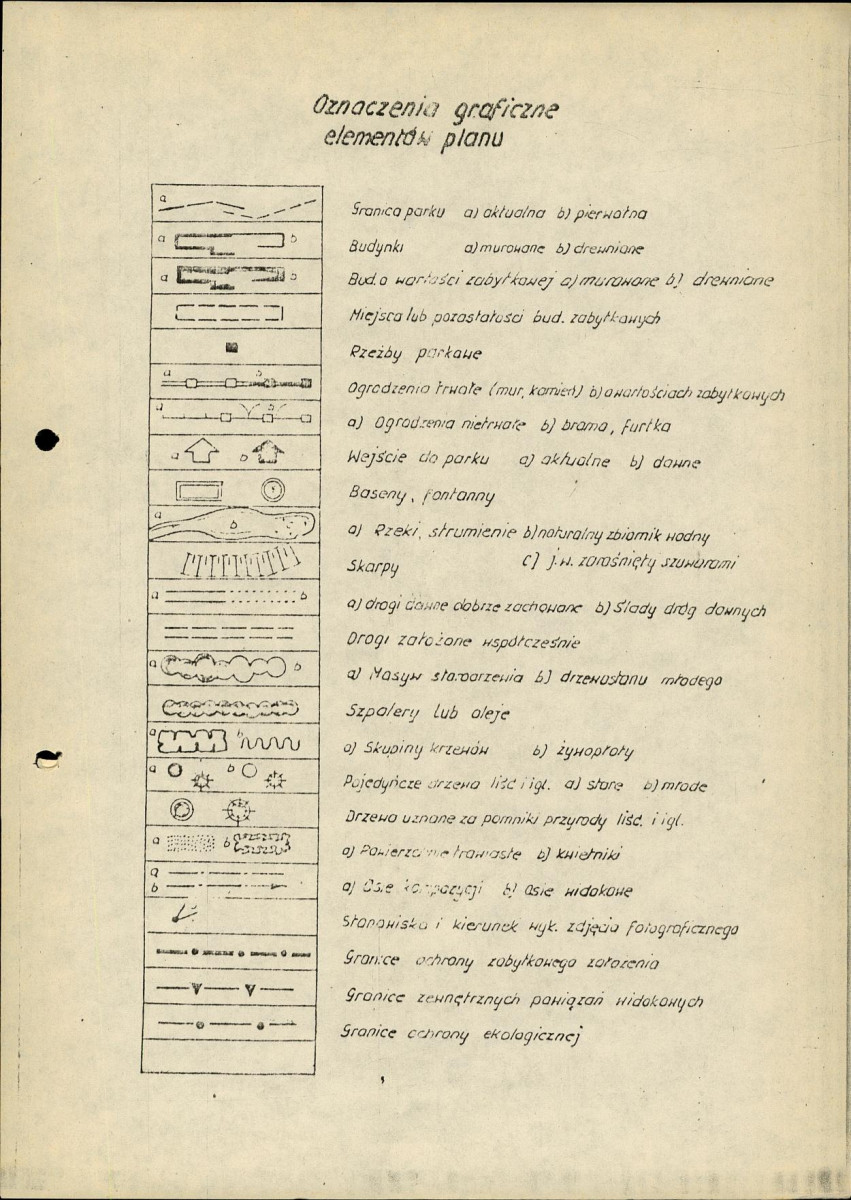 Oznaczenia graficzne
elementów planu
a
Granica parku a) aktualna b) pierwotna
a b
Budynki a) murowane b) drewniane
a b
Bud. o wartości zabytkowej a) murowane b) drewniane
Miejsca lub pozostałości bud. zabytkowych
Rzeźby parkowe
a b
Ogrodzenia trwałe (mur, kamień) b) o wartościach zabytkowych
a b
a) Ogrodzenia nietrwałe b) brama, furtka
a b
Wejście do parku a) aktualne b) dawne
Baseny, fontanny
a b c
a) Rzeki, strumienie b) naturalny zbiornik wodny
c) j.w. zarośnięty szuwarami
Skarpy
a b
a) drogi dawne dobrze zachowane b) Ślady dróg dawnych
Drogi założone współcześnie
a b
a) Masyw starodrzenia b) drzewostanu młodego
Szpalery lub aleje
a b
a) Skupiny krzewów b) żywopłoty
a b
Pojedyńcze drzewa liść i igl. a) stare b) młode
Drzewa uznane za pomniki przyrody liść. i igl.
a b
a) Powierzchnie trawiaste b) kwietniki
a
b
a) Osie kompozycji b) Osie widokowe
Stanowiska i kierunek wyk. zdjęcia fotograficznego
Granice ochrony zabytkowego założenia
Granice zewnętrznych powiązań widokowych
Granice ochrony ekologicznej